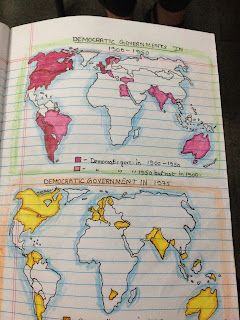 DEMOCRATIC GOVERNMENTS IN
1900-1950
- Democratic govt. in 1900-1950
- " " " 1950 but not in 1900.
DEMOCRATIC GOVERNMENT IN 1975